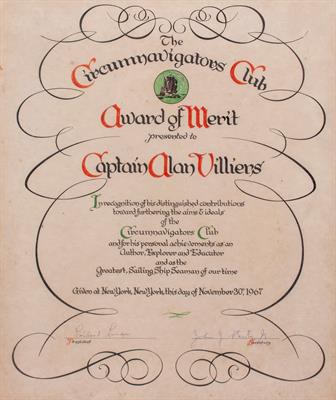 The
Circumnavigators' Club
Award of Merit
presented to
Captain Alan Villiers
In recognition of his distinguished contributions
toward furthering the aims & ideals
of the
Circumnavigators Club
and for his personal achievements as an
Author, Explorer and Educator
and as the
Greatest, Sailing Ship Seaman of our time
Given at New York, New York, this day of November 30, 1967
President
Secretary